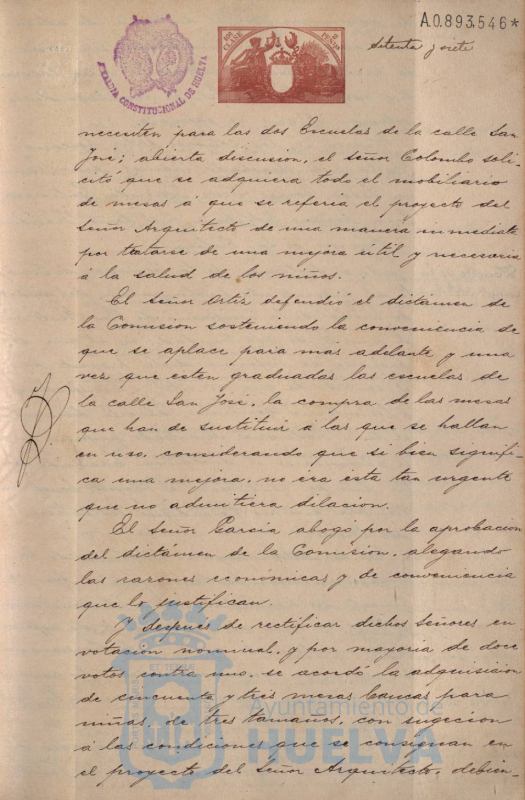 A.0.893,546*
10ª CLASE
2 PESETAS
ALCALDIA CONSTITUCIONAL DE HUELVA
Setenta y siete
necesiten para las dos Escuelas de la calle San
José; abierta discusion, el señor Colombo soli-
citó que se adquiera todo el mobiliario
de mesas á que se referia el proyecto del
Señor Arquitecto de una manera inmediata
por tratarse de una mejora útil y necesaria
á la salud de los niños.
El Señor Ortiz defendió el dictámen de
la Comision sosteniendo la conveniencia de
que se aplace para más adelante y una
vez que esten graduadas las escuelas de
la calle San José, la compra de las mesas
que han de sustituir á las que se hallan
en uso, considerando que si bien signifi-
ca una mejora, no era esta tan urgente
que no admitiera dilacion.
El Señor García abogó por la aprobacion
del dictámen de la Comision, alegando
las razones económicas y de conveniencia
que lo justifican.
Y despues de rectificar dichos Señores en
votacion nominal, y por mayoria de doce
votos contra uno, se acordó la adquisicion
de cincuenta y tres mesas bancas para
niñas, de tres tamaños, con sugecion
á las condiciones que se consignan en
el proyecto del Señor Arquitecto, debien-
Ayuntamiento de
HUELVA